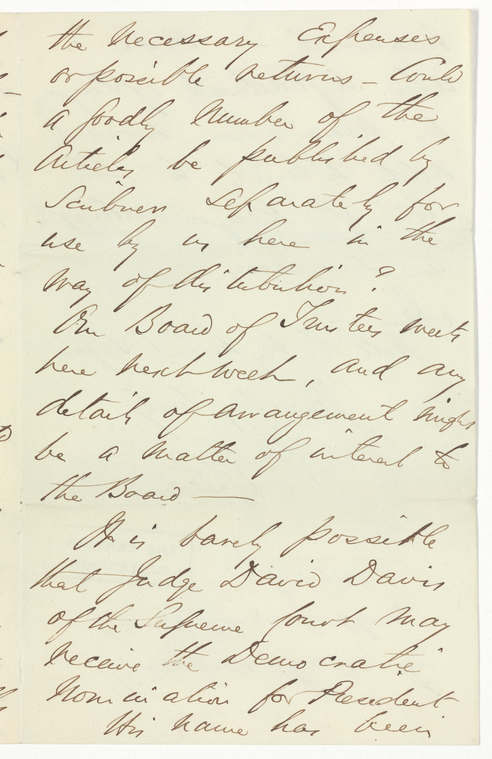 the necessary Expenses
or possible returns – Could
a goodly number of the
Articles be published by
Scribners separately for
use by us here in the
way of distribution?
Our Board of Trustees meets
here next week, and any
details of arrangement might
be a matter of interest to
the Board —
It is barely possible
that Judge David Davis
of the Supreme Court may
receive the Democratic
Nomination for President
His name has been